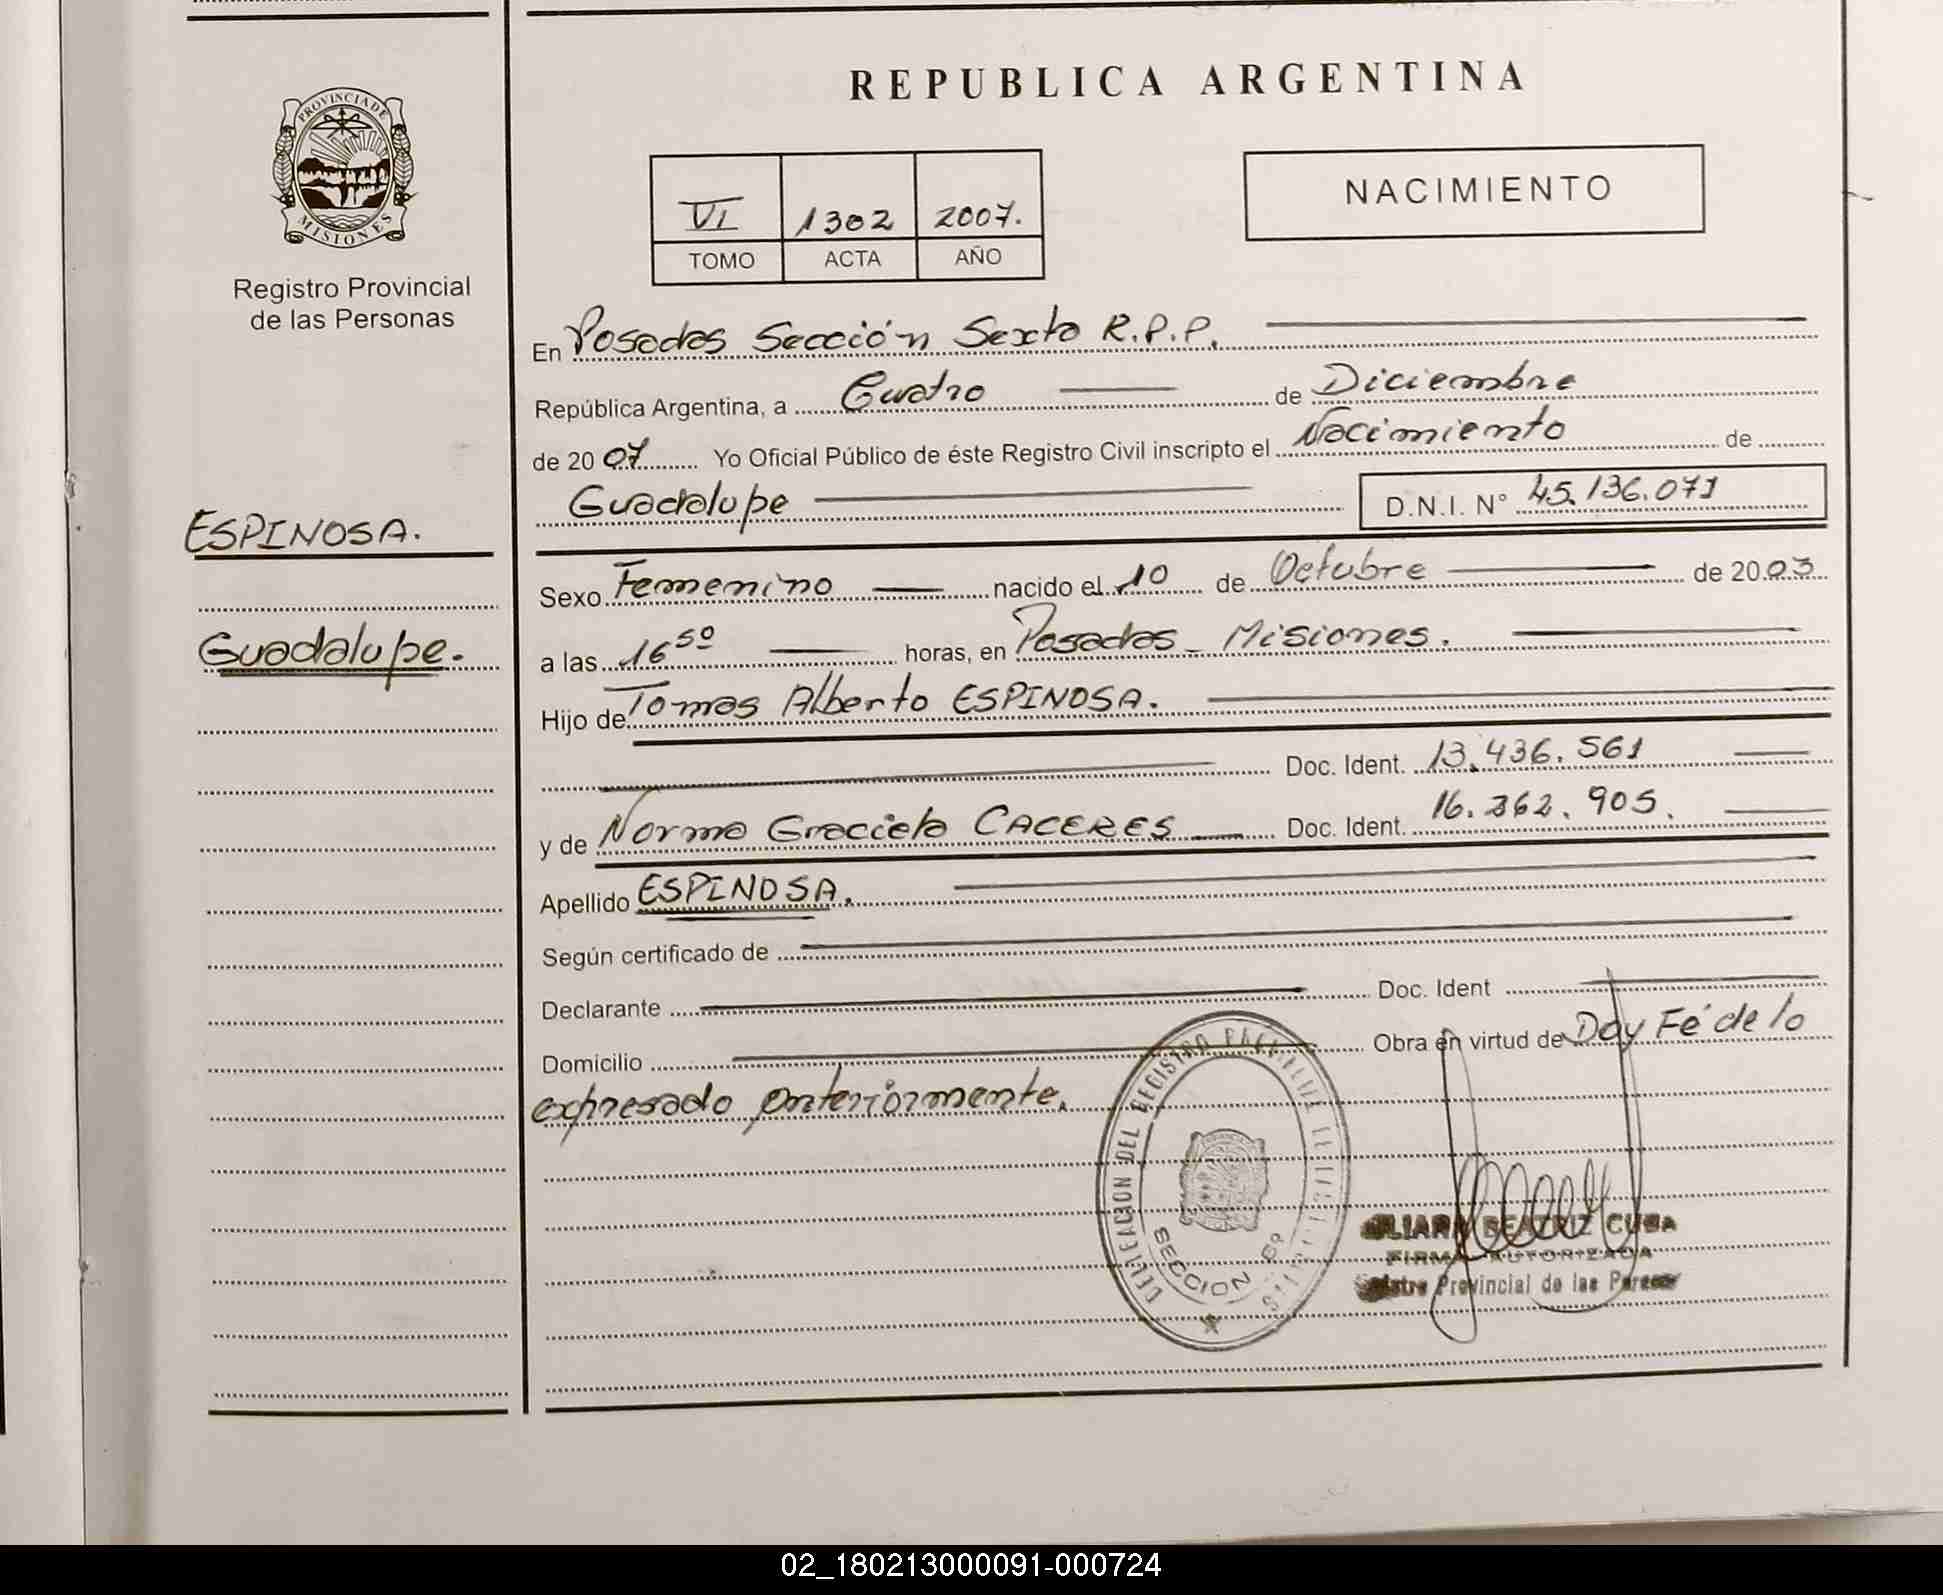 REPUBLICA ARGENTINA
PROVINCIA DE
MISIONES
Registro Provincial
de las Personas
VI 1302 2007.
TOMO ACTA AÑO
NACIMIENTO
En Posadas Sección Sexta R.P.P.
República Argentina, a Cuatro de Diciembre
de 2007 Yo Oficial Público de éste Registro Civil inscripto el Nacimiento de
Guadalupe D.N.I. N° 45.136.071
ESPINOSA.
Guadalupe.
Sexo Femenino nacido el 10 de Octubre de 2003
a las 16 50 horas, en Posadas - Misiones.
Hijo de Tomas Alberto ESPINOSA.
Doc. Ident. 13.436.561
y de Norma Graciela CACERES Doc. Ident. 16.362.905.
Apellido ESPINOSA.
Según certificado de
Declarante Doc. Ident
Domicilio Obra en virtud de Doy Fé de lo
expresado anteriormente.
DELEGACION DEL REGISTRO
SECCION 6ª
BEATRIZ CUBA
FIRMA AUTORIZADA
Provincial de las
02_180213000091-000724